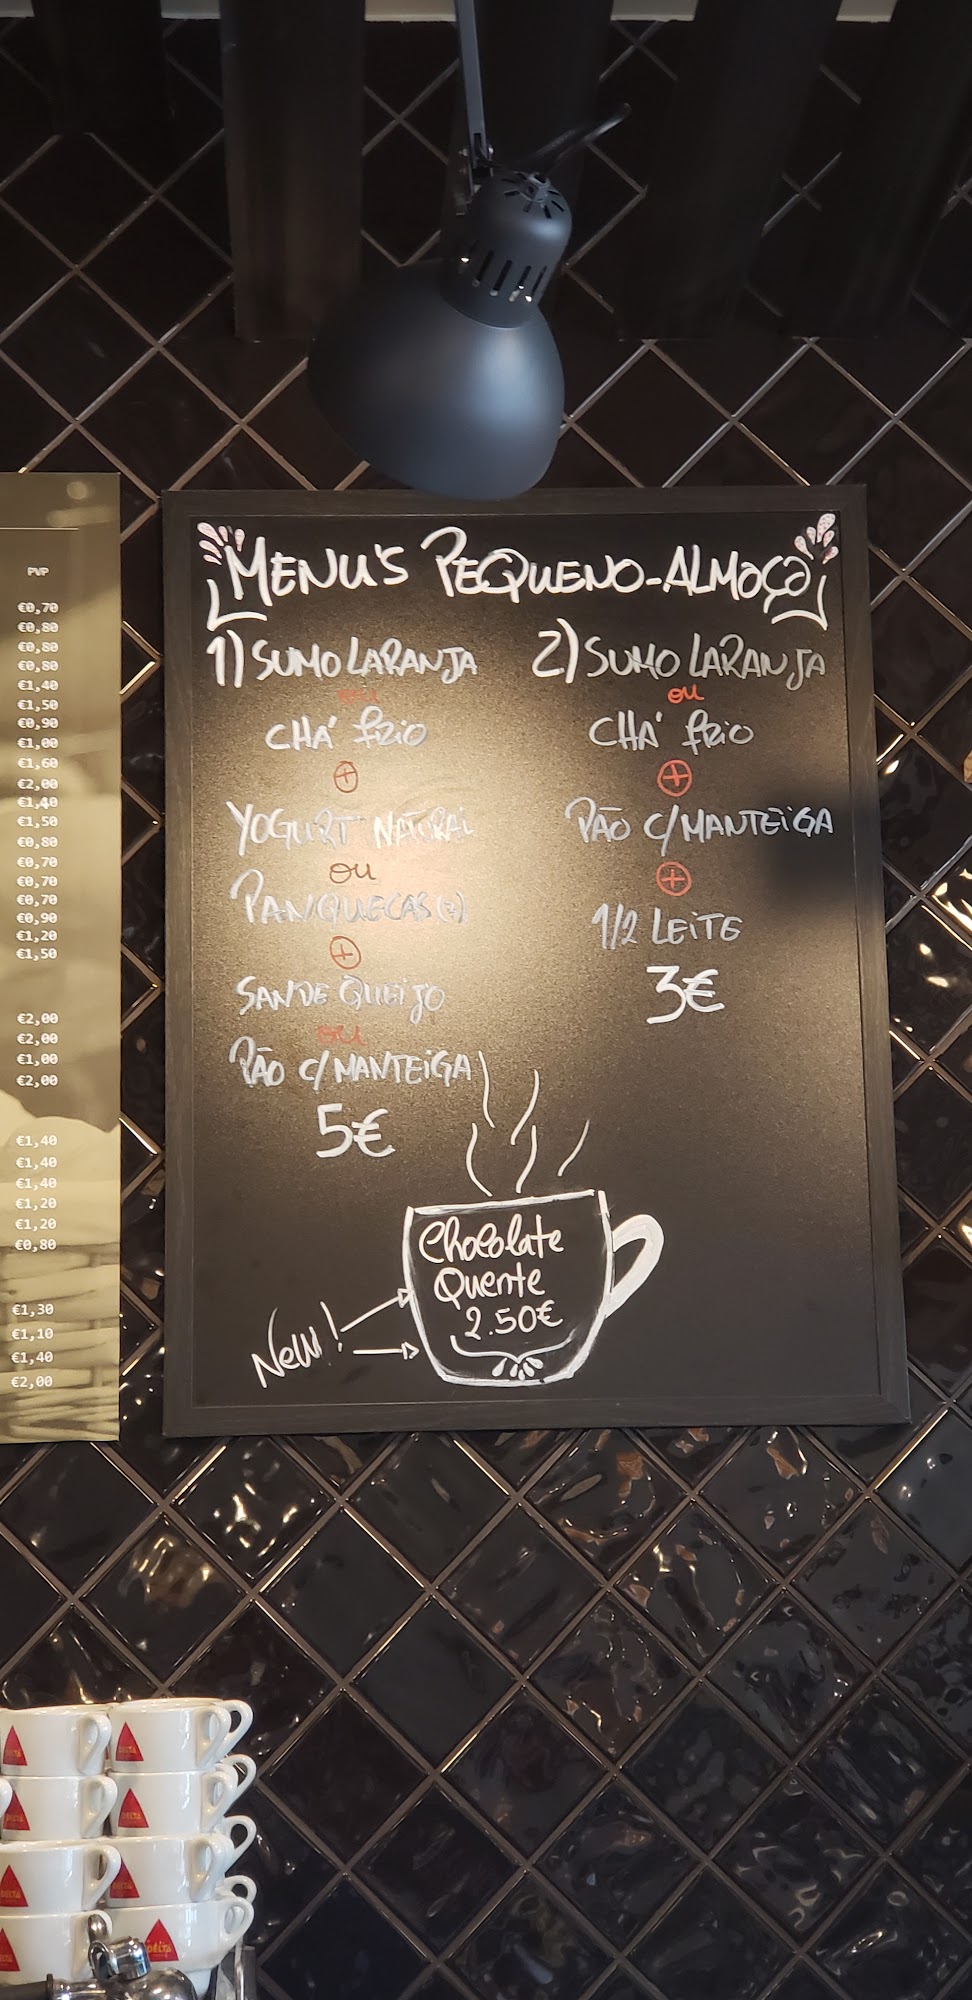 PVP
€0,70
€0,80
€0,80
€0,80
€1,40
€1,50
€0,90
€1,00
€1,60
€2,00
€1,40
€1,50
€0,80
€0,70
€0,70
€0,70
€0,90
€1,20
€1,50
€2,00
€2,00
€1,00
€2,00
€1,40
€1,40
€1,40
€1,20
€1,20
€0,80
€1,30
€1,10
€1,40
€2,00
MENU'S PEQUENO-ALMOÇO
1) SUMO LARANJA
ou
CHÁ frio
+
YOGURT NATURAL
ou
PANQUECAS
+
SANDE QUEIJO
ou
PÃO C/MANTEIGA
5€
2) SUMO LARANJA
ou
CHÁ frio
+
PÃO C/MANTEIGA
+
1/2 LEITE
3€
New!
Chocolate
Quente
2.50€
DELTA
DELTA
DELTA
DELTA
DELTA
DELTA